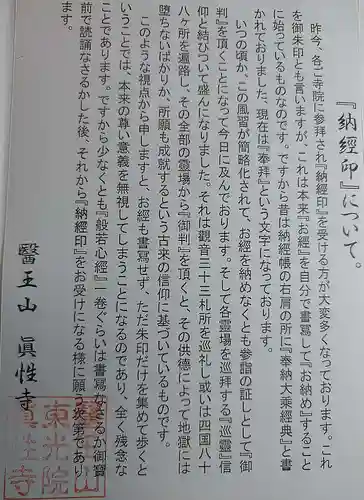 『納經印』について。
昨今、各ご寺院に参拜され『納經印』を受ける方が大変多くなっております。これ
を御朱印とも言いますが、これは本来『お經』を自分で書寫して『お納め』すること
に始っているものなのです。ですから昔は納經帳の右肩の所に『奉納大乘經典』と書
かれておりました、現在は『奉拜』という文字になっております。
いつの頃か、この風習が簡略化されて、お經を納めなくとも参詣の証しとして『御
判』を頂くことになって今日に及んでおります。そして各霊場を巡拜する『巡靈』信
仰と結びついて盛んになりました。それは觀音三十三札所を巡礼し或いは四国八十
八ヶ所を遍路し、その全部の霊場から『御判』を頂くと、その供徳によって地獄には
堕ちないばかりか、所願も成就するという古来の信仰に基づいているものです。
このような視点から申しますと、お經も書寫せず、ただ朱印だけを集めて歩くと
いうことでは、本来の尊い意義を無視してしまうことになるのであり、全く残念な
ことであります。ですから少なくとも『般若心經』一巻ぐらいは書寫なさるか御寶
前で読誦なさるかした後、それから『納經印』をお受けになる様に願う次第であり
ます。
醫王山 眞性寺
醫王山
東光院
眞性寺